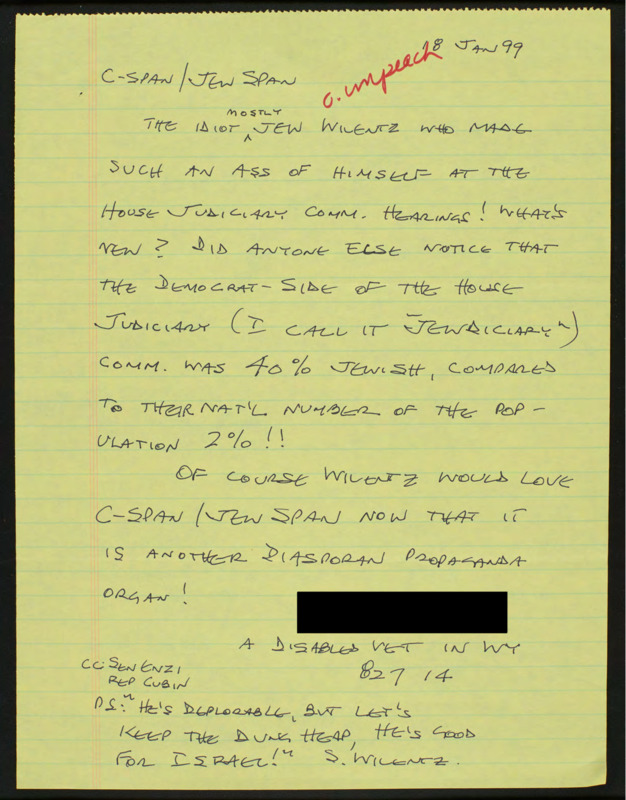 18 JAN 99
O. impeach
C-SPAN/JEW SPAN
MOSTLY
THE IDIOT ^ JEW WILENTZ WHO MADE
SUCH AN ASS OF HIMSELF AT THE
HOUSE JUDICIARY COMM. HEARINGS! WHAT'S
NEW? DID ANYONE ELSE NOTICE THAT
THE DEMOCRAT-SIDE OF THE HOUSE
JUDICIARY (I CALL IT "JEWDICIARY")
COMM. WAS 40% JEWISH, COMPARED
TO THEIR NAT'L NUMBER OF THE POP-
ULATION 2%!!
OF COURSE WILENTZ WOULD LOVE
C-SPAN/JEW SPAN NOW THAT IT
IS ANOTHER DIASPORAN PROPAGANDA
ORGAN!
A DISABLED VET IN WY
82714
CC: SEN ENZI
REP CUBIN
P.S. "HE'S DEPLORABLE, BUT LET'S
KEEP THE DUNG HEAP, HE'S GOOD
FOR ISRAEL!" S. WILENTZ.